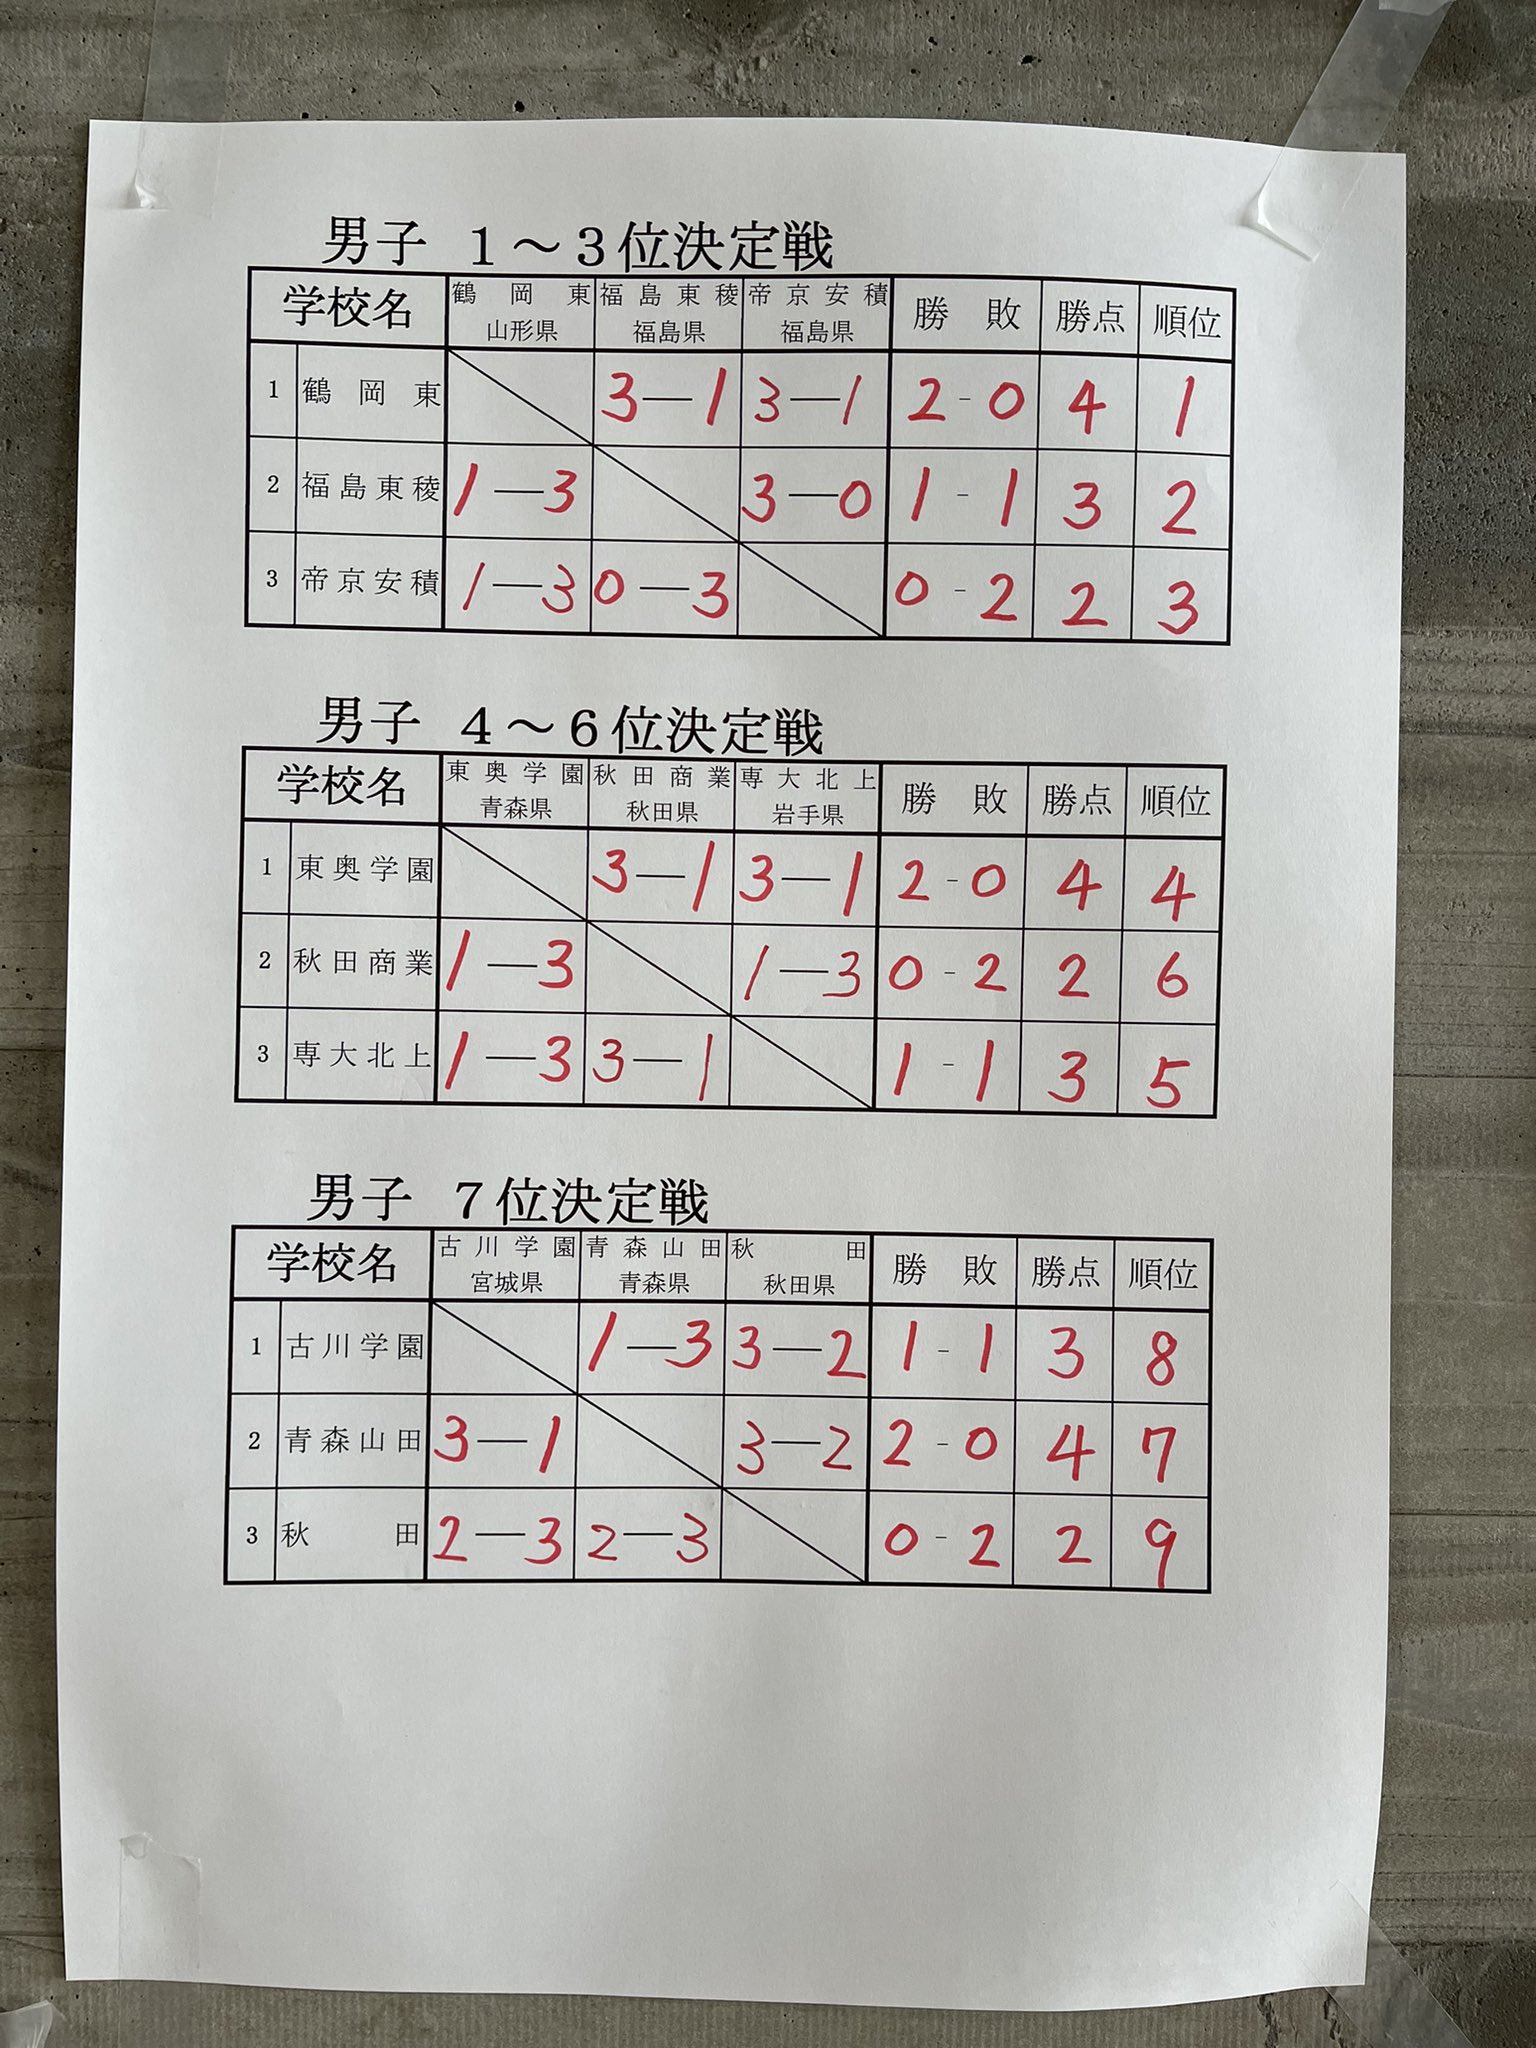 男子 1～3位決定戦
学校名 鶴岡東 山形県 福島東稜 福島県 帝京安積 福島県 勝敗 勝点 順位
1 鶴岡東 3―1 3―1 2-0 4 1
2 福島東稜 1―3 3―0 1-1 3 2
3 帝京安積 1―3 0―3 0-2 2 3
男子 4～6位決定戦
学校名 東奥学園 青森県 秋田商業 秋田県 専大北上 岩手県 勝敗 勝点 順位
1 東奥学園 3―1 3―1 2-0 4 4
2 秋田商業 1―3 1―3 0-2 2 6
3 専大北上 1―3 3―1 1-1 3 5
男子 7位決定戦
学校名 古川学園 宮城県 青森山田 青森県 秋田 秋田県 勝敗 勝点 順位
1 古川学園 1―3 3―2 1-1 3 8
2 青森山田 3―1 3―2 2-0 4 7
3 秋田 2―3 2―3 0-2 2 9